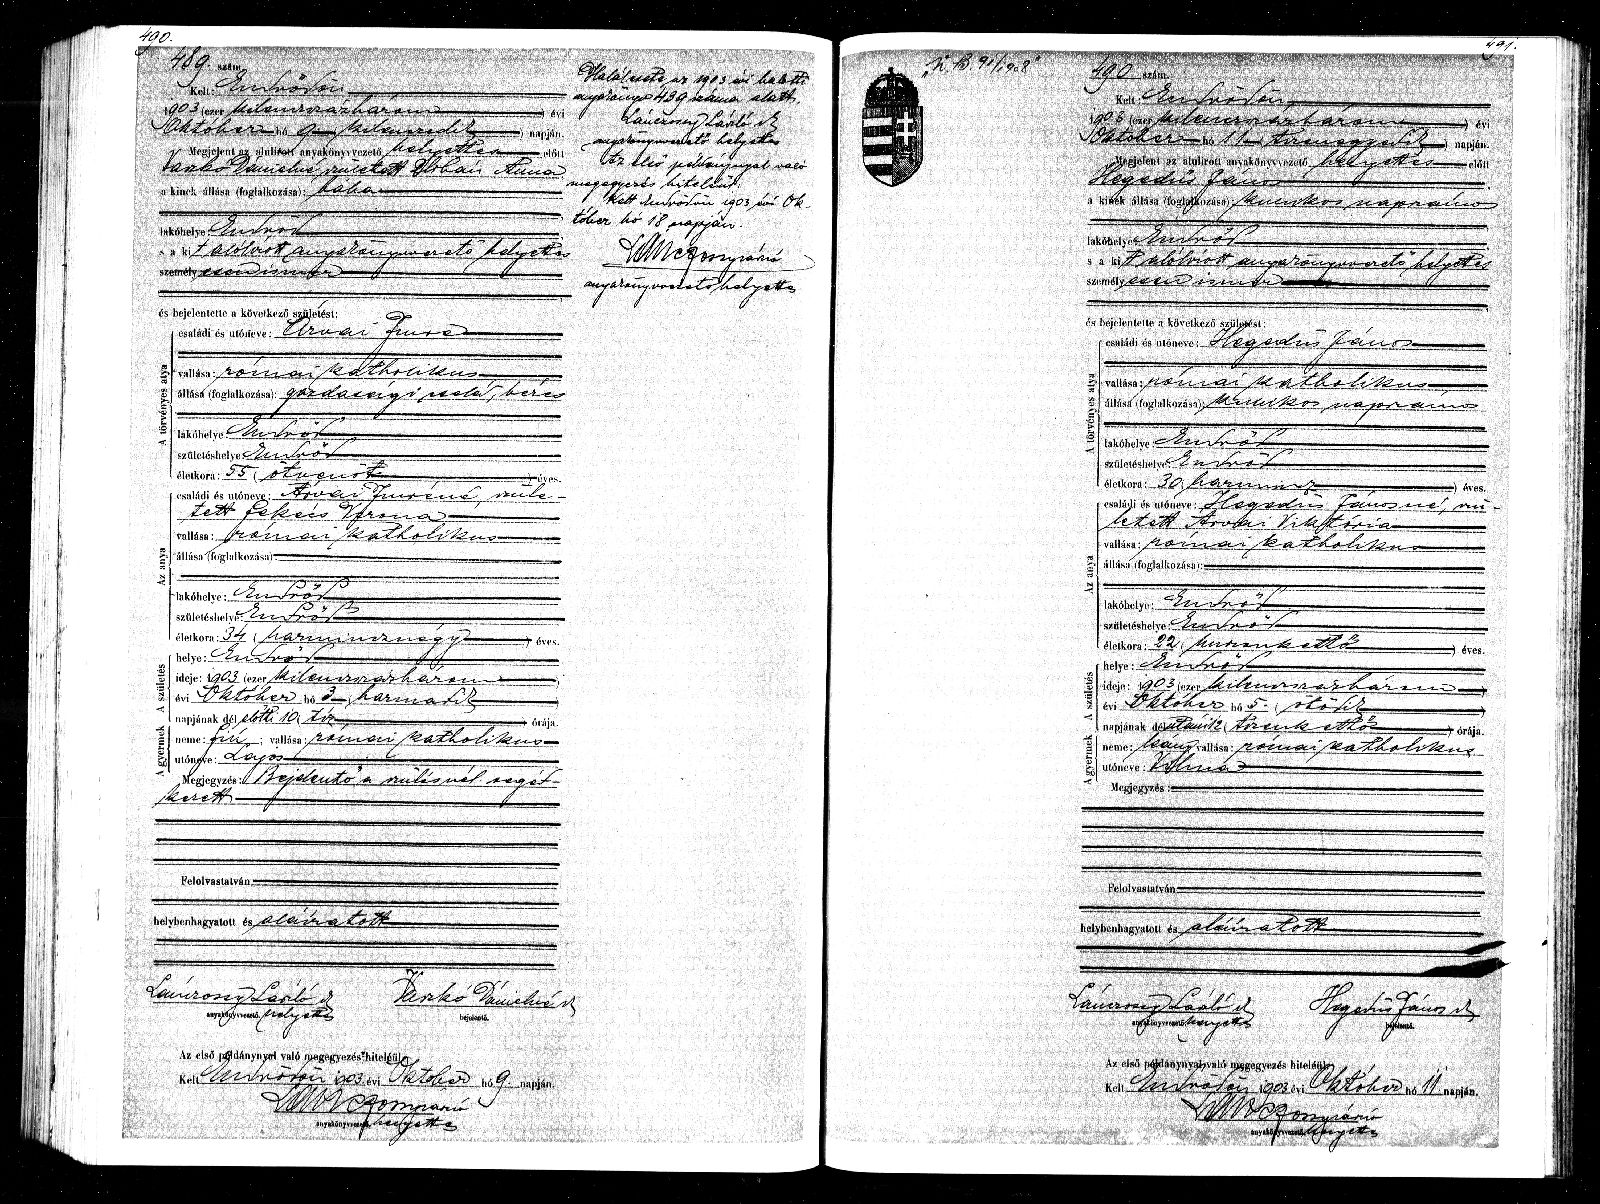 490.
489. szám.
Kelt: Endrődön
1903 (ezer kilenczszázhárom) évi
Október hó 9 kilenczedik) napján.
Megjelent az alulirott anyakönyvvezető helyettes előtt
Dánielné, született Anna
a kinek állása (foglalkozása): bába
lakóhelye: Endrőd
s a ki t alulirott anyakönyvvezető helyettes
személyesen ismer
és bejelentette a következő születést:
A törvényes atya
családi és utóneve: Árvai Imre
vallása: római katholikus
állása (foglalkozása): gazdasági cseléd, béres
lakóhelye Endrőd
születéshelye: Endrőd
életkora: 55 (ötvenöt) éves.
Az anya
családi és utóneve: Árvai Imréné, szüle-
tett Fekécs Verona
vallása: római katholikus
állása (foglalkozása)
lakóhelye: Endrőd
születéshelye: Endrőd
életkora: 34 (harmincznégy) éves.
A születés
helye: Endrőd
ideje: 1903 (ezer kilenczszázhárom)
évi Október hó 3 (harmadik)
napjának dél előtti 10 (tíz) órája.
A gyermek
neme: fiú; vallása: római katholikus
utóneve: Lajos
Megjegyzés: Bejelentő a szülésnél segéd-
kezett
Felolvastatván,
helybenhagyatott és aláíratott
Lánczosy László sk helyettes
anyakönyvvezető.
Dánielné sk
bejelentő.
Az első példánynyal való megegyezés hiteléül
Kelt Endrődön 1903. évi Október hó 9. napján.
anyakönyvvezető. helyettes
Halálesete az 1903 évi halotti
anyakönyv 439 száma alatt.
Lánczosy László sk
anyakönyvvezető helyettes
Az első példánynyal való
megegyezés hiteléül.
Kelt Endrődön 1903. évi Ok-
tóber hó 18 napján.
anyakönyvvezető helyettes
491.
490 szám.
Kelt: Endrődön
1903 (ezer kilenczszázhárom) évi
Október hó 11 tizenegyedik) napján.
Megjelent az alulirott anyakönyvvezető helyettes előtt
Hegedüs János
a kinek állása (foglalkozása): kunkos napszámos
lakóhelye: Endrőd
s a ki t alulirott anyakönyvvezető helyettes
személyesen ismer
és bejelentette a következő születést:
A törvényes atya
családi és utóneve: Hegedüs János
vallása: római katholikus
állása (foglalkozása): kunkos napszámos
lakóhelye Endrőd
születéshelye: Endrőd
életkora: 30 (harmincz) éves.
Az anya
családi és utóneve: Hegedüs Jánosné, szü-
letett Árvai Viktória
vallása: római katholikus
állása (foglalkozása):
lakóhelye: Endrőd
születéshelye: Endrőd
életkora: 22 (huszonkettő) éves.
A születés
helye: Endrőd
ideje: 1903 (ezer kilenczszázhárom)
évi Október hó 5. (ötödik)
napjának délutáni 12 (tizenkettő) órája.
A gyermek
neme: leány vallása: római katholikus
utóneve: Vilma
Megjegyzés:
Felolvastatván
helybenhagyatott és aláíratott
Lánczosy László sk
anyakönyvvezető. helyettes
Hegedüs János sk
bejelentő.
Az első példánynyal való megegyezés hiteléül
Kelt. Endrődön 1903 évi Október hó 11 napján.
anyakönyvvezető. helyettes